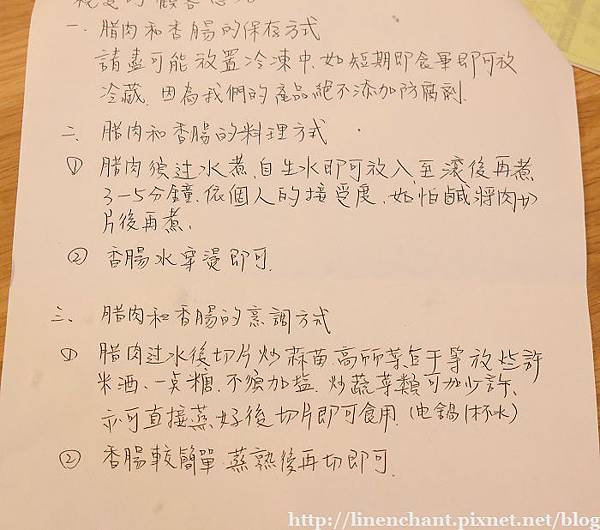 親愛的顧客您好
一、腊肉和香腸的保存方式
請盡可能放置冷凍中,如短期即食畢即可放
冷藏,因為我們的產品絕不添加防腐劑.
二、腊肉和香腸的料理方式.
① 腊肉須过水煮,自生水即可放入,至滾後再煮
3-5分鐘,依個人的接受度,如怕鹹將肉切
片後再煮,
② 香腸水穿燙即可.
三、腊肉和香腸的烹調方式
① 腊肉过水後切片炒蒜苗,高丽菜,豆干等放些許
米酒、一点糖,不須加塩,炒蔬菜類可加少許、
亦可直接蒸好後切片即可食用(电鍋1杯水)
② 香腸較簡單,蒸熟後再切即可.
http://linenchant.pixnet.net/blog